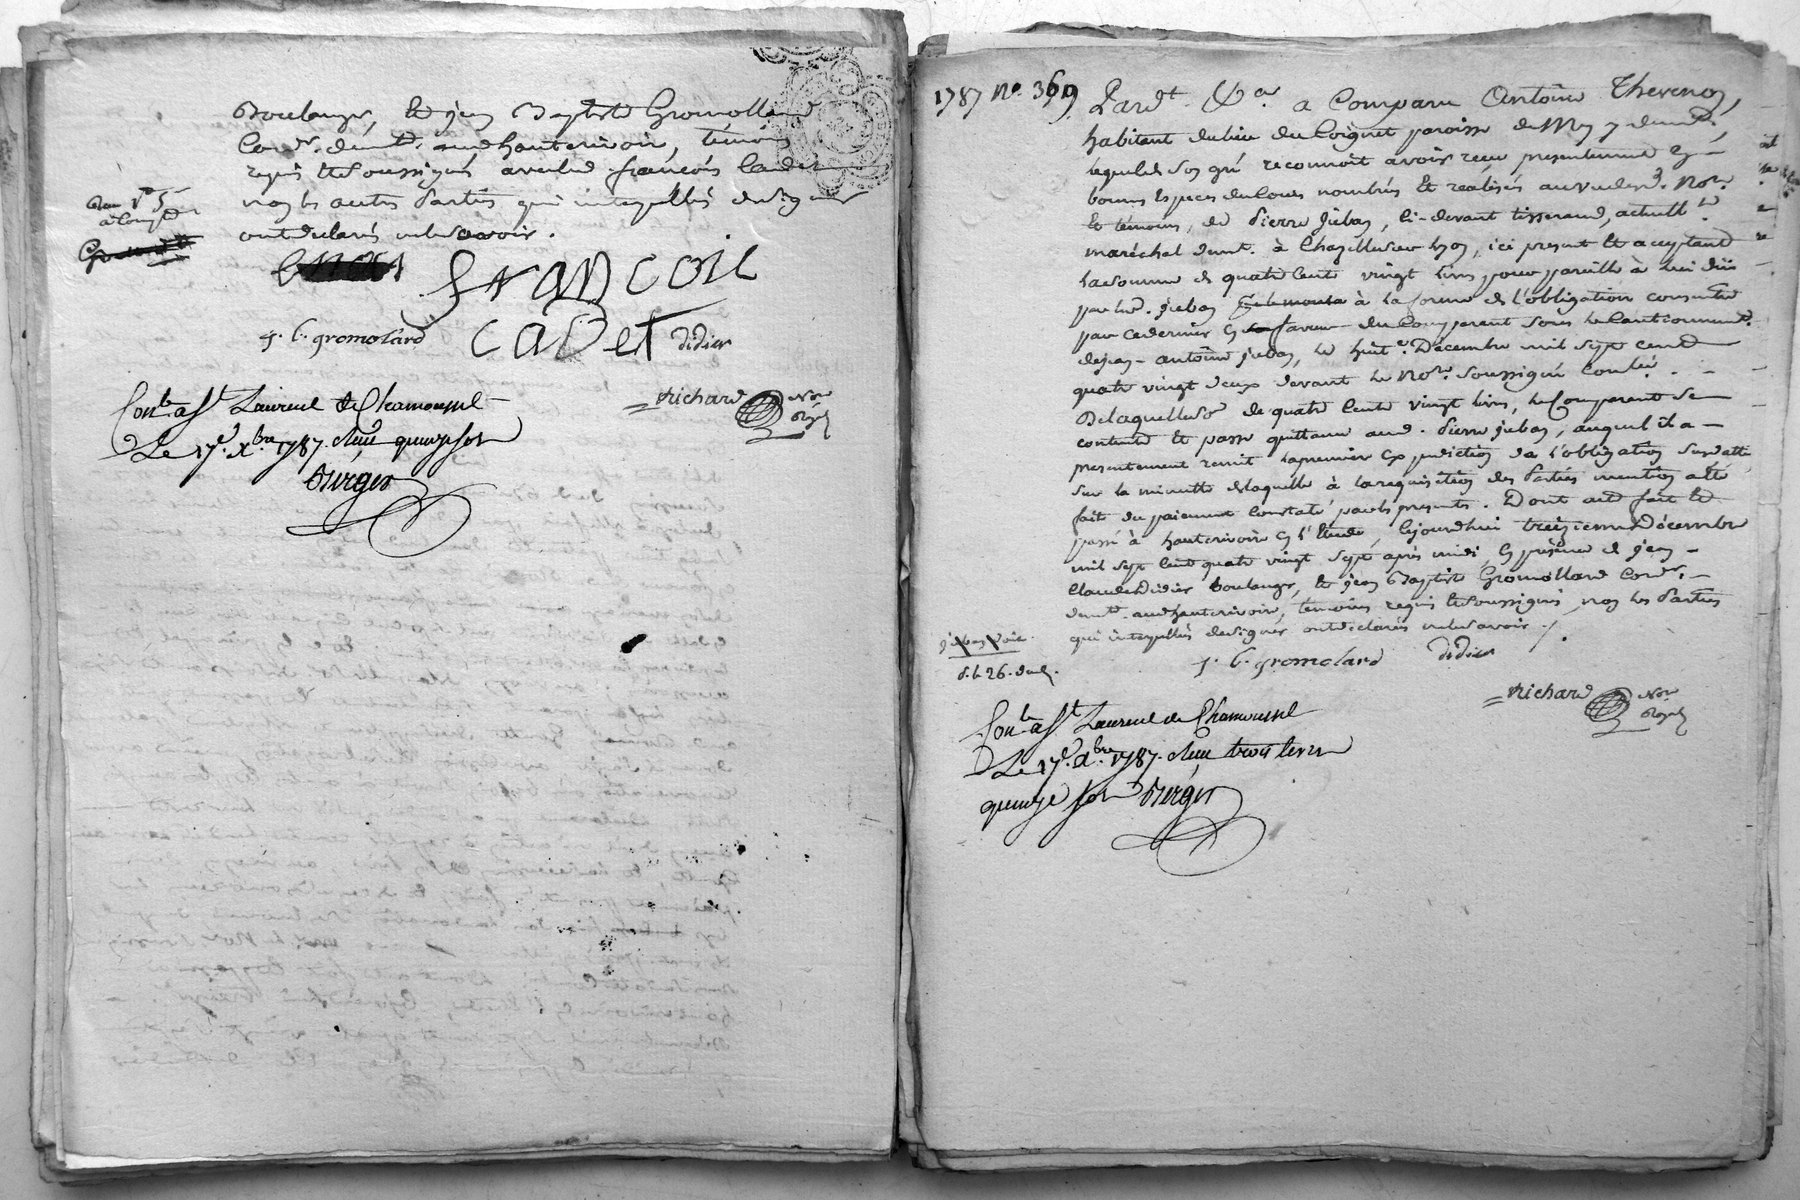 Boulanger, et jean Baptiste Gromollard
Cord.r demt. aud hauterivoir, témoins
requis et soussignés avec led. françois Cadet
non les autres Parties qui interpellés de signer
ont déclarés ne le savoir.
françois
Cadet
j. b. gromolard
didier
Richard Nore Royal
Conlé à St Laurent de Chamousset
Le 17e. Xbre 1787. Reçu quinze sols
Burger
1787 No. 369.
Pardt. &a. a Comparu Antoine Thevenon,
habitant du lieu du Coignet paroisse de Meys y demt.,
lequel de son gré reconnoit avoir reçu presentement en
bonnes Especes de Cours nombrés et realisés au vu desd. Nore.
et témoins, de Pierre juban, ci-devant tisserand, actuellt.
maréchal demt. à Chazelle sur Lyon, ici present et acceptant
la somme de quatre Cent vingt livres pour pareille à lui düe
par led. juban à la forme de l'obligation consentie
par ce dernier en faveur du Comparant sous le Cautionnement
de jean-antoine juban, le huit Décembre mil sept cent
quatre vingt deux devant le Nore. soussigné Conlée.
De laquelle so de quatre Cents vingt livres, le Comparant se
contente et passe quittance aud. Pierre juban, auquel il a
presentement remit la premiere Expedition de l'obligation susdatée
sur la minutte de laquelle à la requisition des Parties mention a été
faite du paiement Constaté par les presents. Dont acte fait et
passé à hauterivoir en l'Etude, Cejourd'hui treizieme Décembre
mil sept Cent quatre vingt sept après midi, en présence de jean-
Claude Didier boulanger, et jean Baptiste Gromollard Cordr.
demt. aud hauterivoir, témoins requis et soussignés, non les Parties
qui interpellés de signer ont déclarés ne le savoir /.
j. b. gromolard
didier
d. le 26. dud.
Richard Nore Royal
Conlé à St Laurent de Chamousset
Le 17e. Xbre 1787. Reçu trois livres
quinze sols Burger